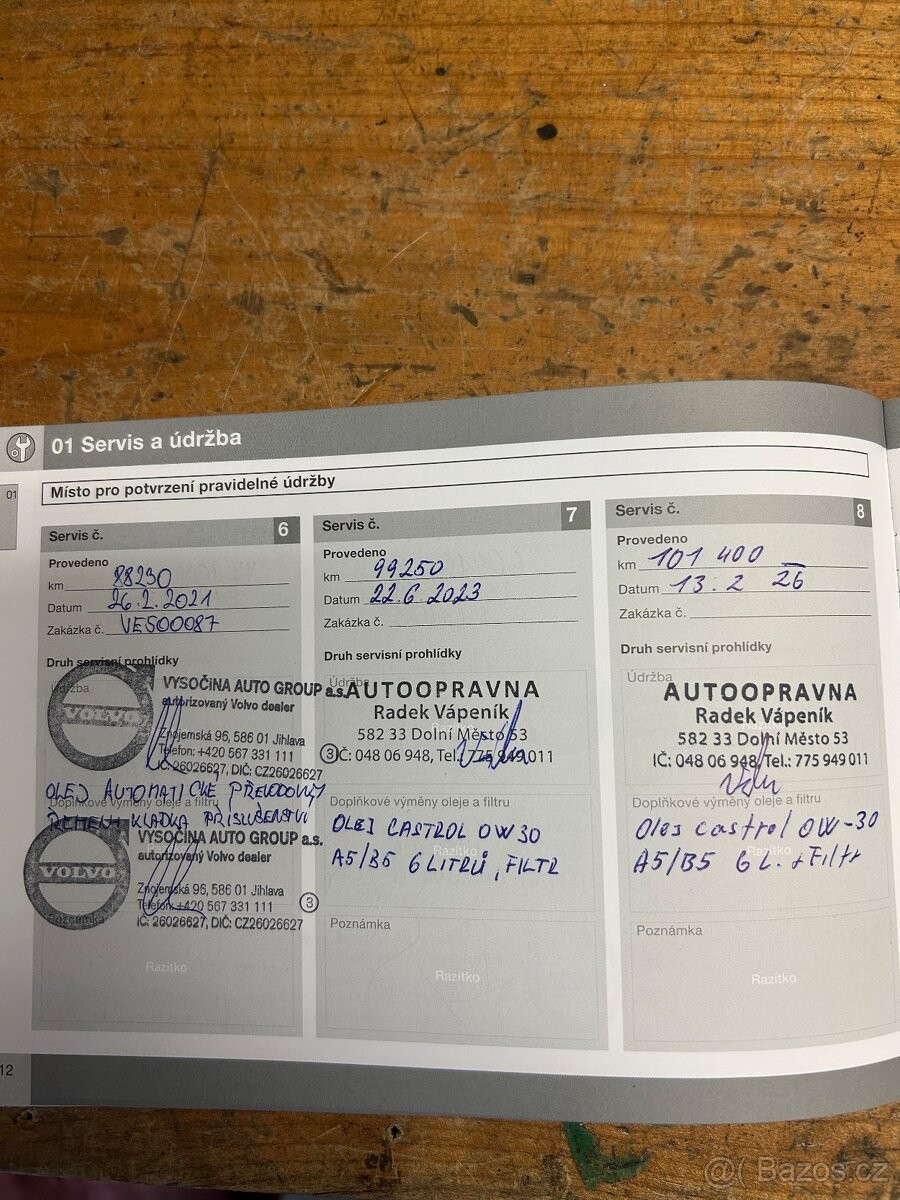 01 Servis a údržba
01
Místo pro potvrzení pravidelné údržby
Servis č. 6
Provedeno
km 88230
Datum 26.2.2021
Zakázka č. VES00087
Druh servisní prohlídky
Údržba
VOLVO
VYSOČINA AUTO GROUP a.s.
autorizovaný Volvo dealer
Znojemská 96, 586 01 Jihlava
Telefon: +420 567 331 111
IČ: 26026627, DIČ: CZ26026627
3
OLEJ AUTOMATICKÉ PŘEVODOVKY
Doplňkové výměny oleje a filtru
ŘEMEN, KLADKA PŘÍSLUŠENSTVÍ
VOLVO
VYSOČINA AUTO GROUP a.s.
autorizovaný Volvo dealer
Znojemská 96, 586 01 Jihlava
Telefon: +420 567 331 111
IČ: 26026627, DIČ: CZ26026627
3
Poznámka
Razítko
Servis č. 7
Provedeno
km 99250
Datum 22.6 2023
Zakázka č.
Druh servisní prohlídky
Údržba
AUTOOPRAVNA
Radek Vápeník
582 33 Dolní Město 53
IČ: 048 06 948, Tel.: 775 949 011
Doplňkové výměny oleje a filtru
OLEJ CASTROL 0W30
Razítko
A5/B5 6 LITRŮ, FILTR
Poznámka
Razítko
Servis č. 8
Provedeno
km 101 400
Datum 13.2 26
Zakázka č.
Druh servisní prohlídky
Údržba
AUTOOPRAVNA
Radek Vápeník
582 33 Dolní Město 53
IČ: 048 06 948, Tel.: 775 949 011
Doplňkové výměny oleje a filtru
Olej castrol 0W-30
Razítko
A5/B5 6 L. + Filtr
Poznámka
Razítko
12
Bazos.cz